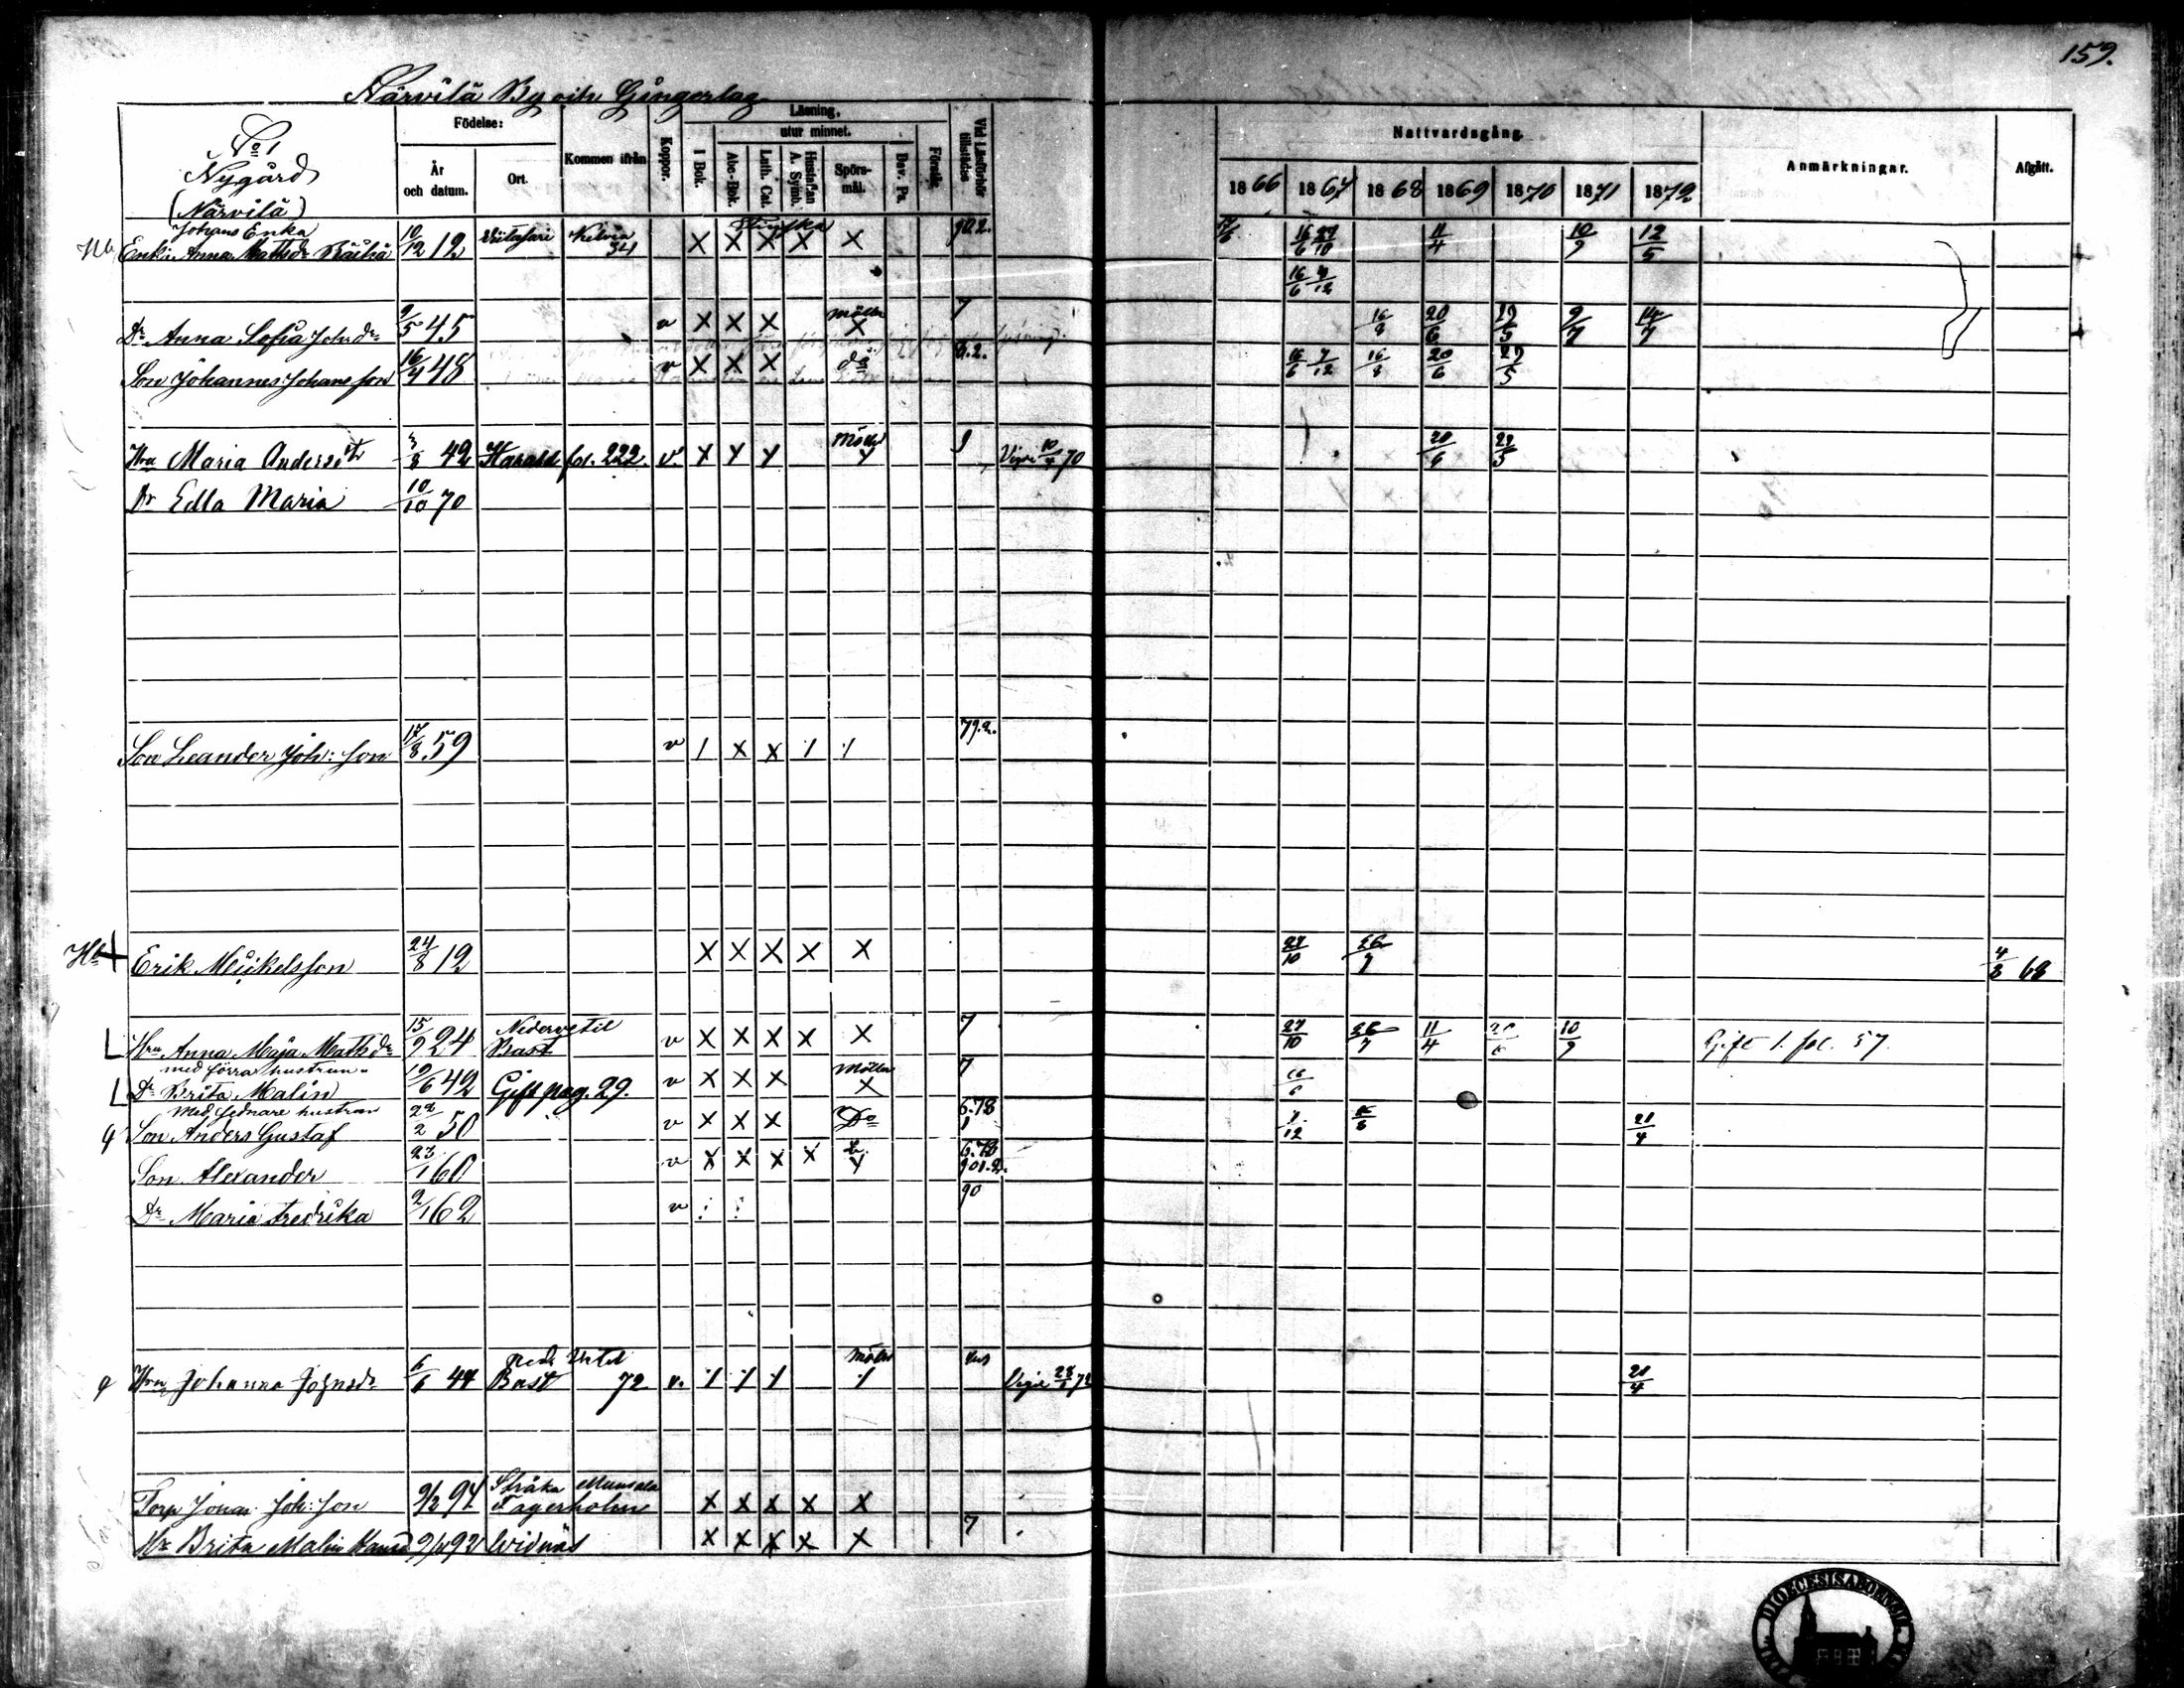 159.
Närvilä By och Gingerlag
No 1
Nygård
(Närvilä)
Födelse:
År och datum.
Ort.
Kommen ifrån
Koppor.
Läsning,
utur minnet.
I Bok.
Abc-Bok.
Luth. Cat.
Hustaflan A. Symb.
Spörs-mål.
Dav. Ps.
Förstår.
Vid Läsförhör tillstädes
Nattvardsgång.
1866 1867 1868 1869 1870 1871 1872
Anmärkningar.
Afgått.
Johans Enka
Enk: Anna Mattsdr 10/12 12 X X X X X 11/4 10/9 12/5
16/6
Dr Anna Sofia Johsdr 9/5 45 v X X X möller X 7 16/8 20/6 9/7 14/7
Son Johannes Johansson 16/4 48 v X X X do 6.2. 16/6 7/12 16/8 20/6 29/5
Hru Maria Andersdr 3/8 42 Harald fol. 222. v. X X X Vigde 10/4 70 20/6 29/5
Dr Edla Maria 10/10 70
Son Leander Joh: son 17/8 59 v / X X / / 79.2.
Erik Mickelsson 24/8 12 X X X X X 27/10 26/7 4/8 68
L Hru Anna Maja Mattsdr 15/9 24 Nedervetil Bast v X X X X X 7 27/10 26/7 11/4 10/9 Gift 1. fol. 57
med förra hustrun
L Dr Brita Malin 19/6 42 Gift pag. 29. v X X X Möller X 7 16/6
med sednare hustrun
Son Anders Gustaf 22/2 50 v X X X Do 6.78 1 7/12 21/4
Son Alexander 23/1 60 v X X X X 6.78
Dr Maria Fredrika 2/1 62 v 90
Hru Johanna Johnsdr 6/6 44 Nedr Vetil Bast 72 v. / / / möller / Vigde 21/4
Torp Jonas Joh: son 9/2 94 Munsala Fagerholm X X X X X
Hu Brita Malin 92 Widnäs X X X X X 7
DIOECESIS ABOENSIS